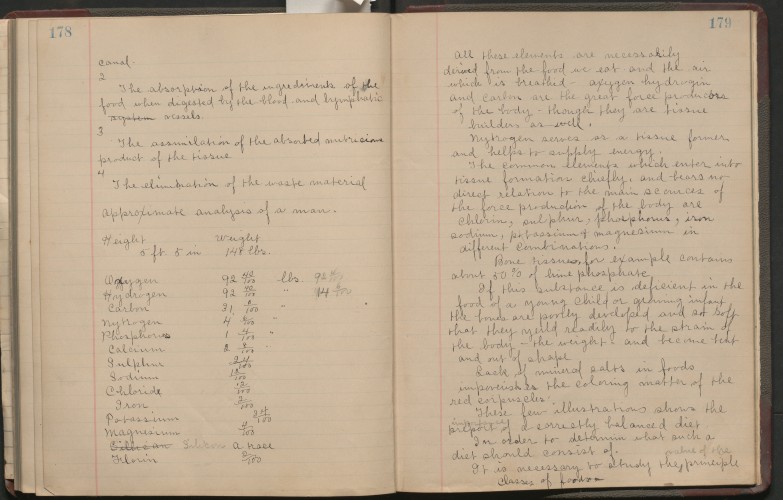 178
canal.
2
The absorption of the ingredients of the
food when digested by the blood and lymphatic
system vessels.
3
The assimilation of the absorbed nutricious
product of the tissue
4
The elimination of the waste material
approximate analyses of a man.
Height Weight
5 ft. 5 in 148 lbs.
Oxygen 92 40/100 lbs. 92
Hydrogen 92 40/100 " 14
Carbon 31 "
Nytrogen 4 "
Phosphorus 1 "
Calcium 2 /100 "
Sulphur 24/100
Sodium /100
Chloride 12/100
Iron 2/100
Potassium 24/100
Magnesium /100
Silicon a trace
Florin 2/100
179
All these elements are necessarily
derived from the food we eat and the air
which is breathed - oxygen hydrogin
and carbon are the great force producers
of the body - though they are tissue
builders as well.
Nytrogen serves as a tissue former
and helps to supply energy.
The common elements which enter into
tissue formation chiefly, and bears no
direct relation to the main scources of
the force production of the body are
Chlorin, sulphur, phosphorus, iron
sodium, potassium & magnesium in
different combinations.
Bone tissue, for example contains
about 50% of lime phosphate.
If this substance is deficient in the
food of a young child or growing infant
the bones are poorly developed and so soft
that they yield readily to the strain of
the body - the weight - and become bent
and out of shape
Lack of mineral salts in foods
impoverishes the coloring matter of the
red corpuscles.
These few illustrations shows the
of a correctly balanced diet
In order to determin what such a
diet should consist of.
value of the
It is necessary to study the principle
classes of foods